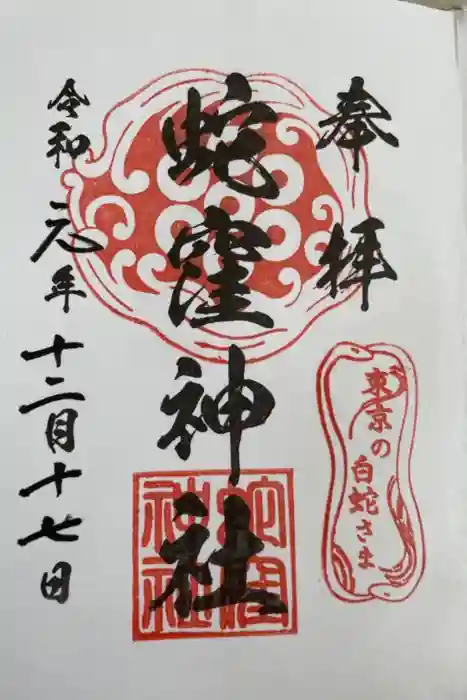 奉拝
東京の白蛇さま
蛇窪神社
蛇窪
神社
令和元年十二月十七日